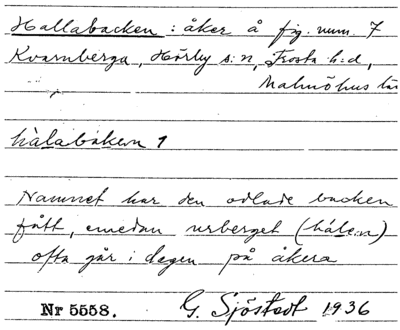 Hallabacken : åker å fig. num. 7
Kvarnberga, Hörby s:n, Frosta h:d,
Malmöhus län
hàlabàkem 1
Namnet har den odlade backen
fått, emedan urberget (hálen)
ofta går i dagen på åkern
Nr 5558. G. Sjöstedt 1936